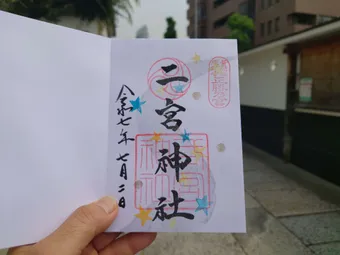 二宮神社
令和七年七月二日